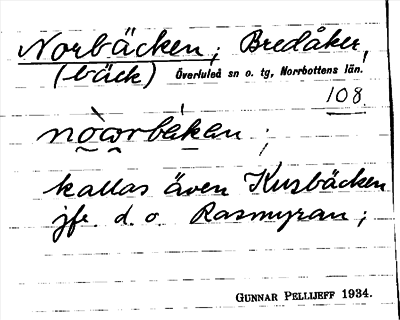 Norbäcken; Bredåker,
(bäck) Överluleå sn o. tg, Norrbottens län.
108.
nòωrbek̲an;
kallas även Kursbäcken
jfr d. o. Rasmyran;
GUNNAR PELLIJEFF 1934.